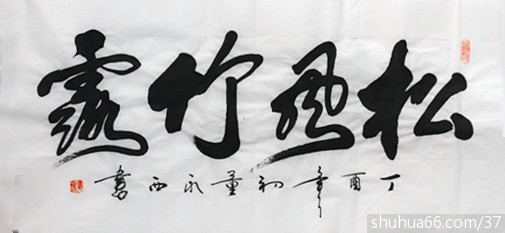 松風竹露
丁酉年初永西書
shuhua66.com/37